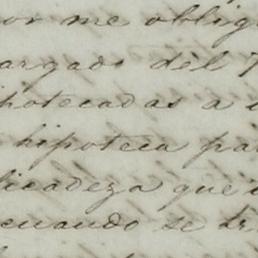 or me oblig
argado del
hipotecadas a
hipoteca pa
licadeza que
cuando se tr